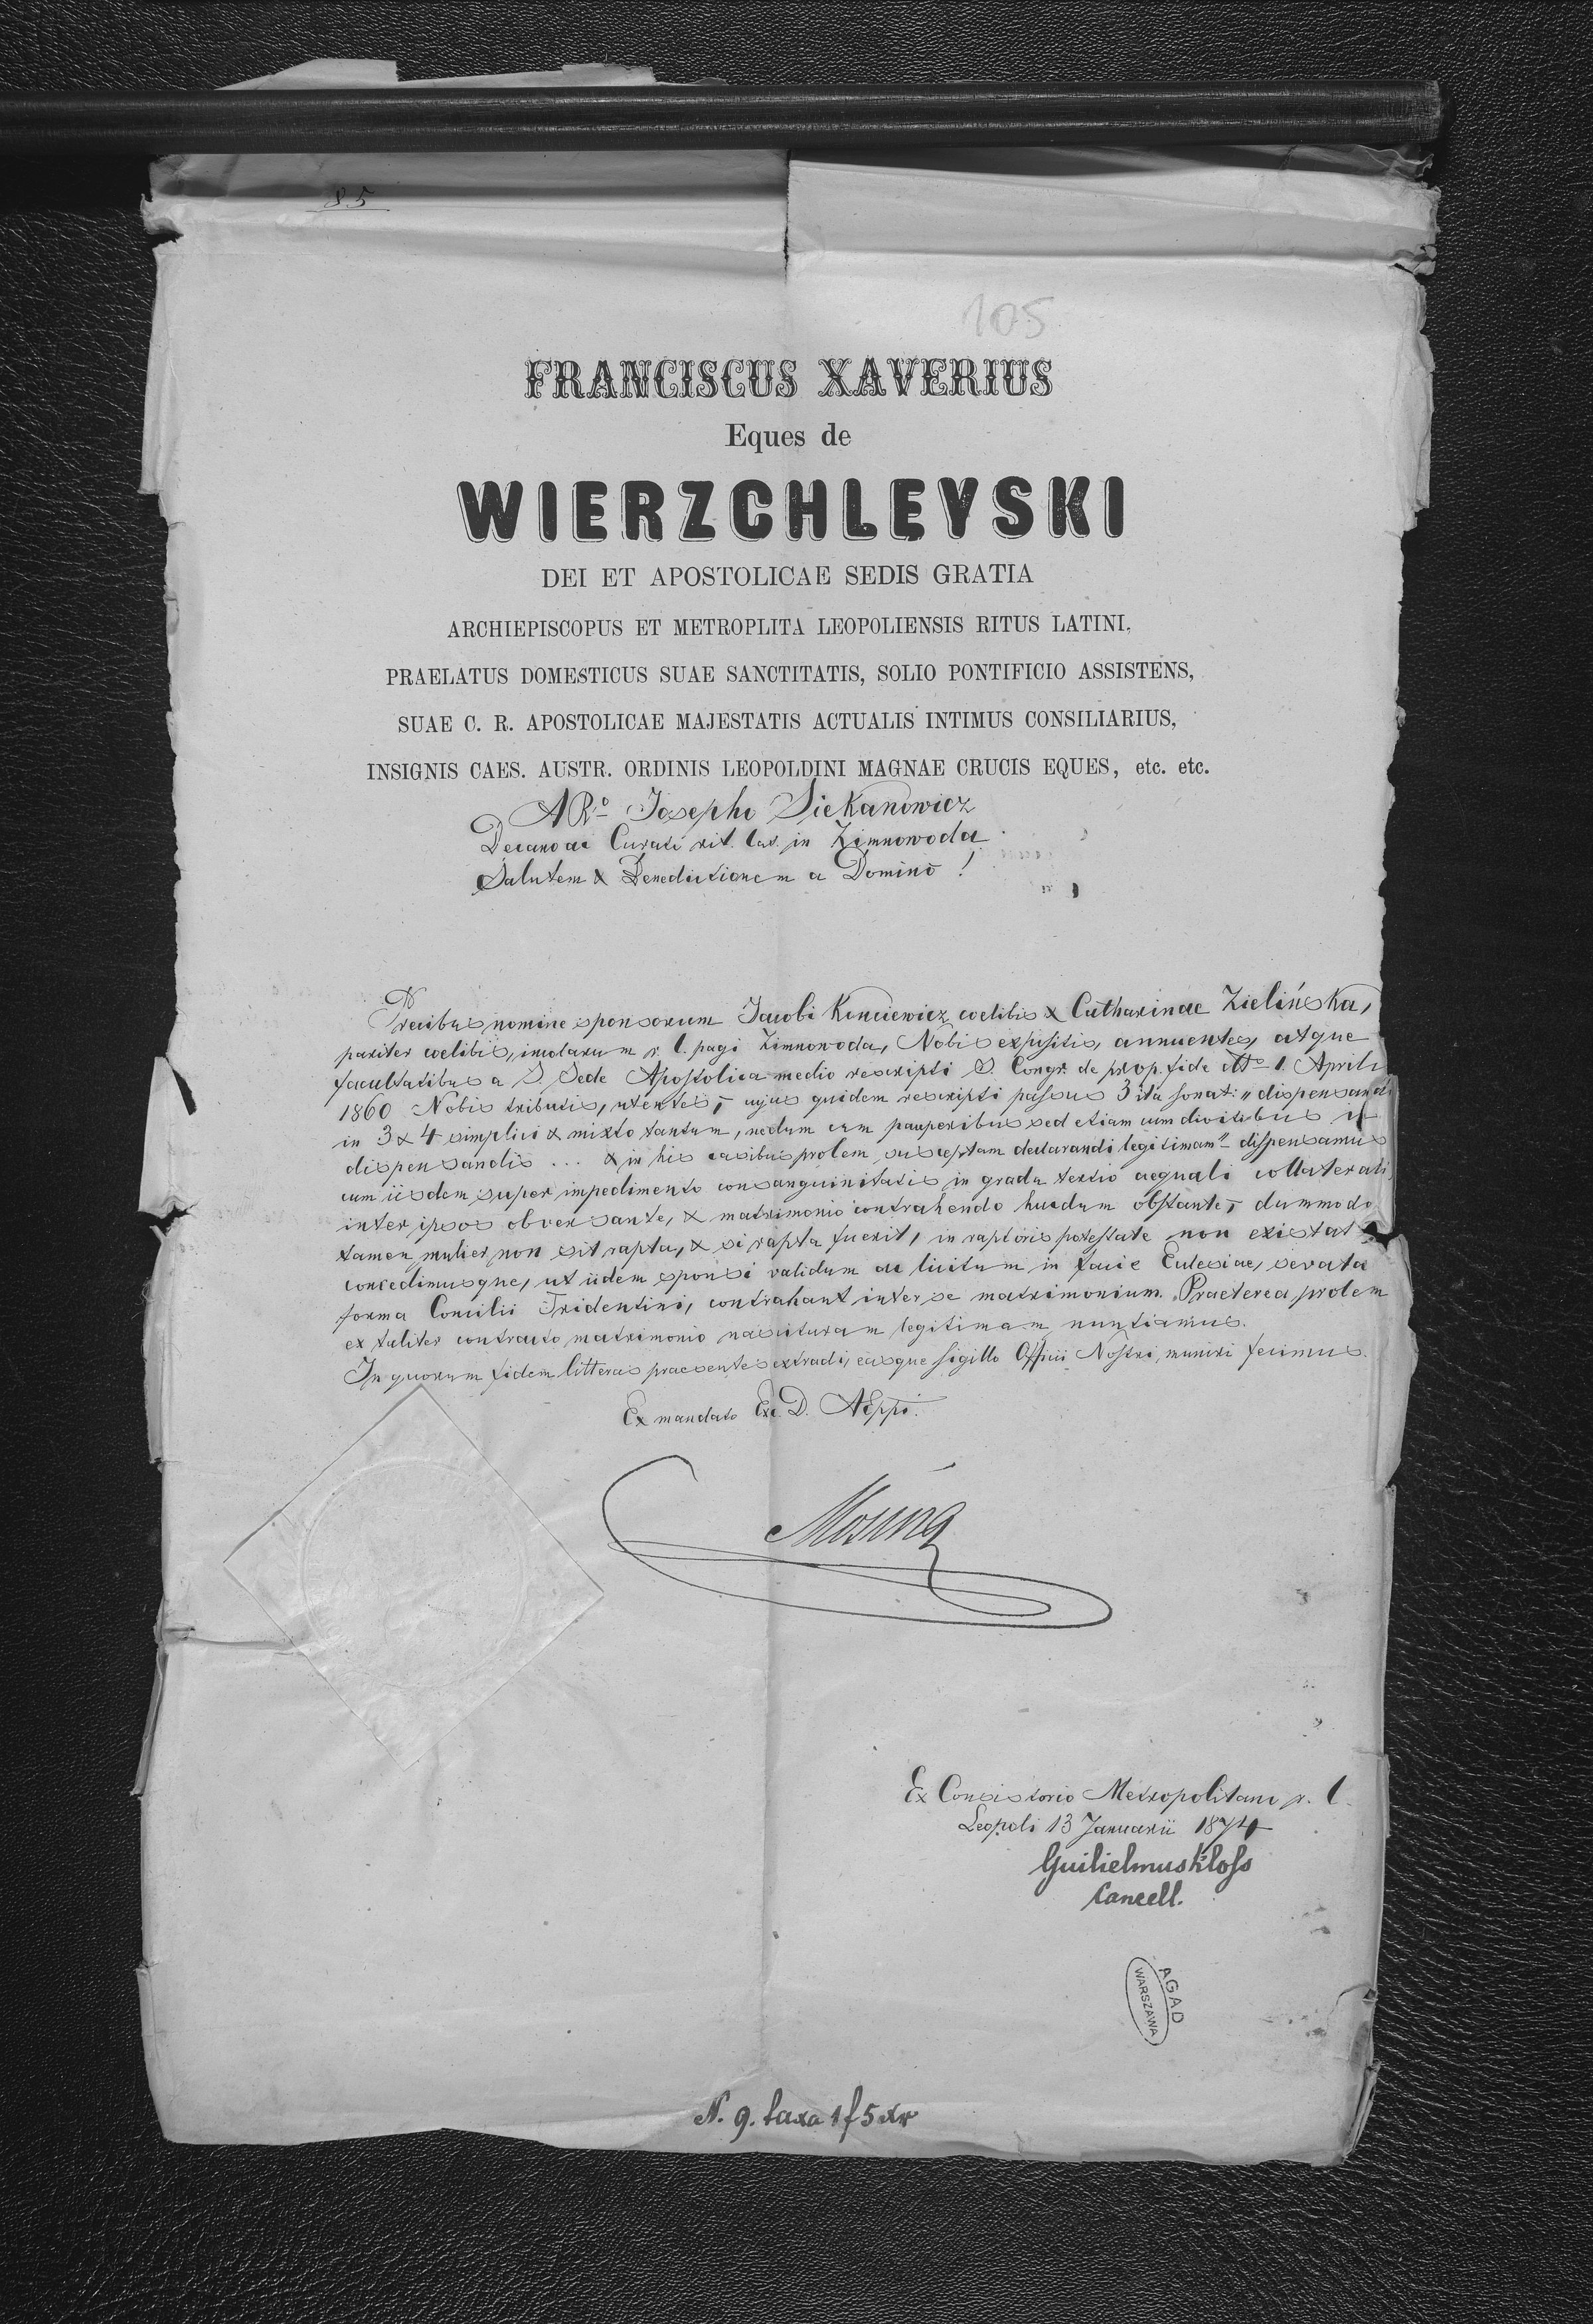 85
105
FRANCISCUS XAVERIUS
Eques de
WIERZCHLEYSKI
DEI ET APOSTOLICAE SEDIS GRATIA
ARCHIEPISCOPUS ET METROPLITA LEOPOLIENSIS RITUS LATINI,
PRAELATUS DOMESTICUS SUAE SANCTITATIS, SOLIO PONTIFICIO ASSISTENS,
SUAE C. R. APOSTOLICAE MAJESTATIS ACTUALIS INTIMUS CONSILIARIUS,
INSIGNIS CAES. AUSTR. ORDINIS LEOPOLDINI MAGNAE CRUCIS EQUES, etc. etc.
A R̲o̲ Josepho Siekanowicz
Decano ac Curato rit. lat. in Zimnowoda
Salutem & Benedictionem a Domino!
Precibus nomine sponsorum Jacobi Kunciewicz coelibis & Catharinae Zielińska,
pariter coelibis, incolarum r. l. pagi Zimnowoda, Nobis expositis, annuentes, atque
facultatibus a S. Sede Apostolica medio rescripti S. Congr. de prop. fide ddto 1. Aprilis
1860 Nobis tributis, utentes, cujus quidem rescripti passus 3 ita sonat: „dispensandi
in 3 & 4 simplici & mixto tantum, nedum cum pauperibus sed etiam cum divitibus in
dispensandis ... & in his casibus prolem susceptam declarandi legitimam" dispensamus
cum iisdem super impedimento consanguinitatis in gradu tertio aequali collaterali,
inter ipsos obversante, & matrimonio contrahendo hucdum obstante, dummodo
tamen mulier non sit rapta, & si rapta fuerit, in raptoris potestate non existat
concedimusque, ut iidem sponsi validum ac licitum in facie Eclesiae, sevata
forma Concilii Tridentini, contrahant inter se matrimonium. Praeterea prolem
ex taliter contracto matrimonio nascituram legitimam nuntiamus.
In quorum fidem litteras praesentes extradi, easque sigillo Officii Nostri, muniri fecimus.
Ex mandato Exc. D. AEppi.
Mosing
Ex Consistorio Metropolitano r. l.
Leopoli 13 Januarii 1874
Guilielmus Kloss
Cancell.
AGAD
WARSZAWA
N. 9. taxa 1 f 5 xr